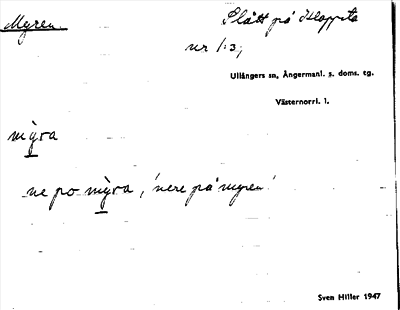 Myren.
Slått på Klappsta
nr 1:3,
Ullångers sn, Ångermanl. s. doms. tg.
Västernorrl. l.
mỳra
ne po mỳra, 'nere på myren'
Sven Hiller 1947